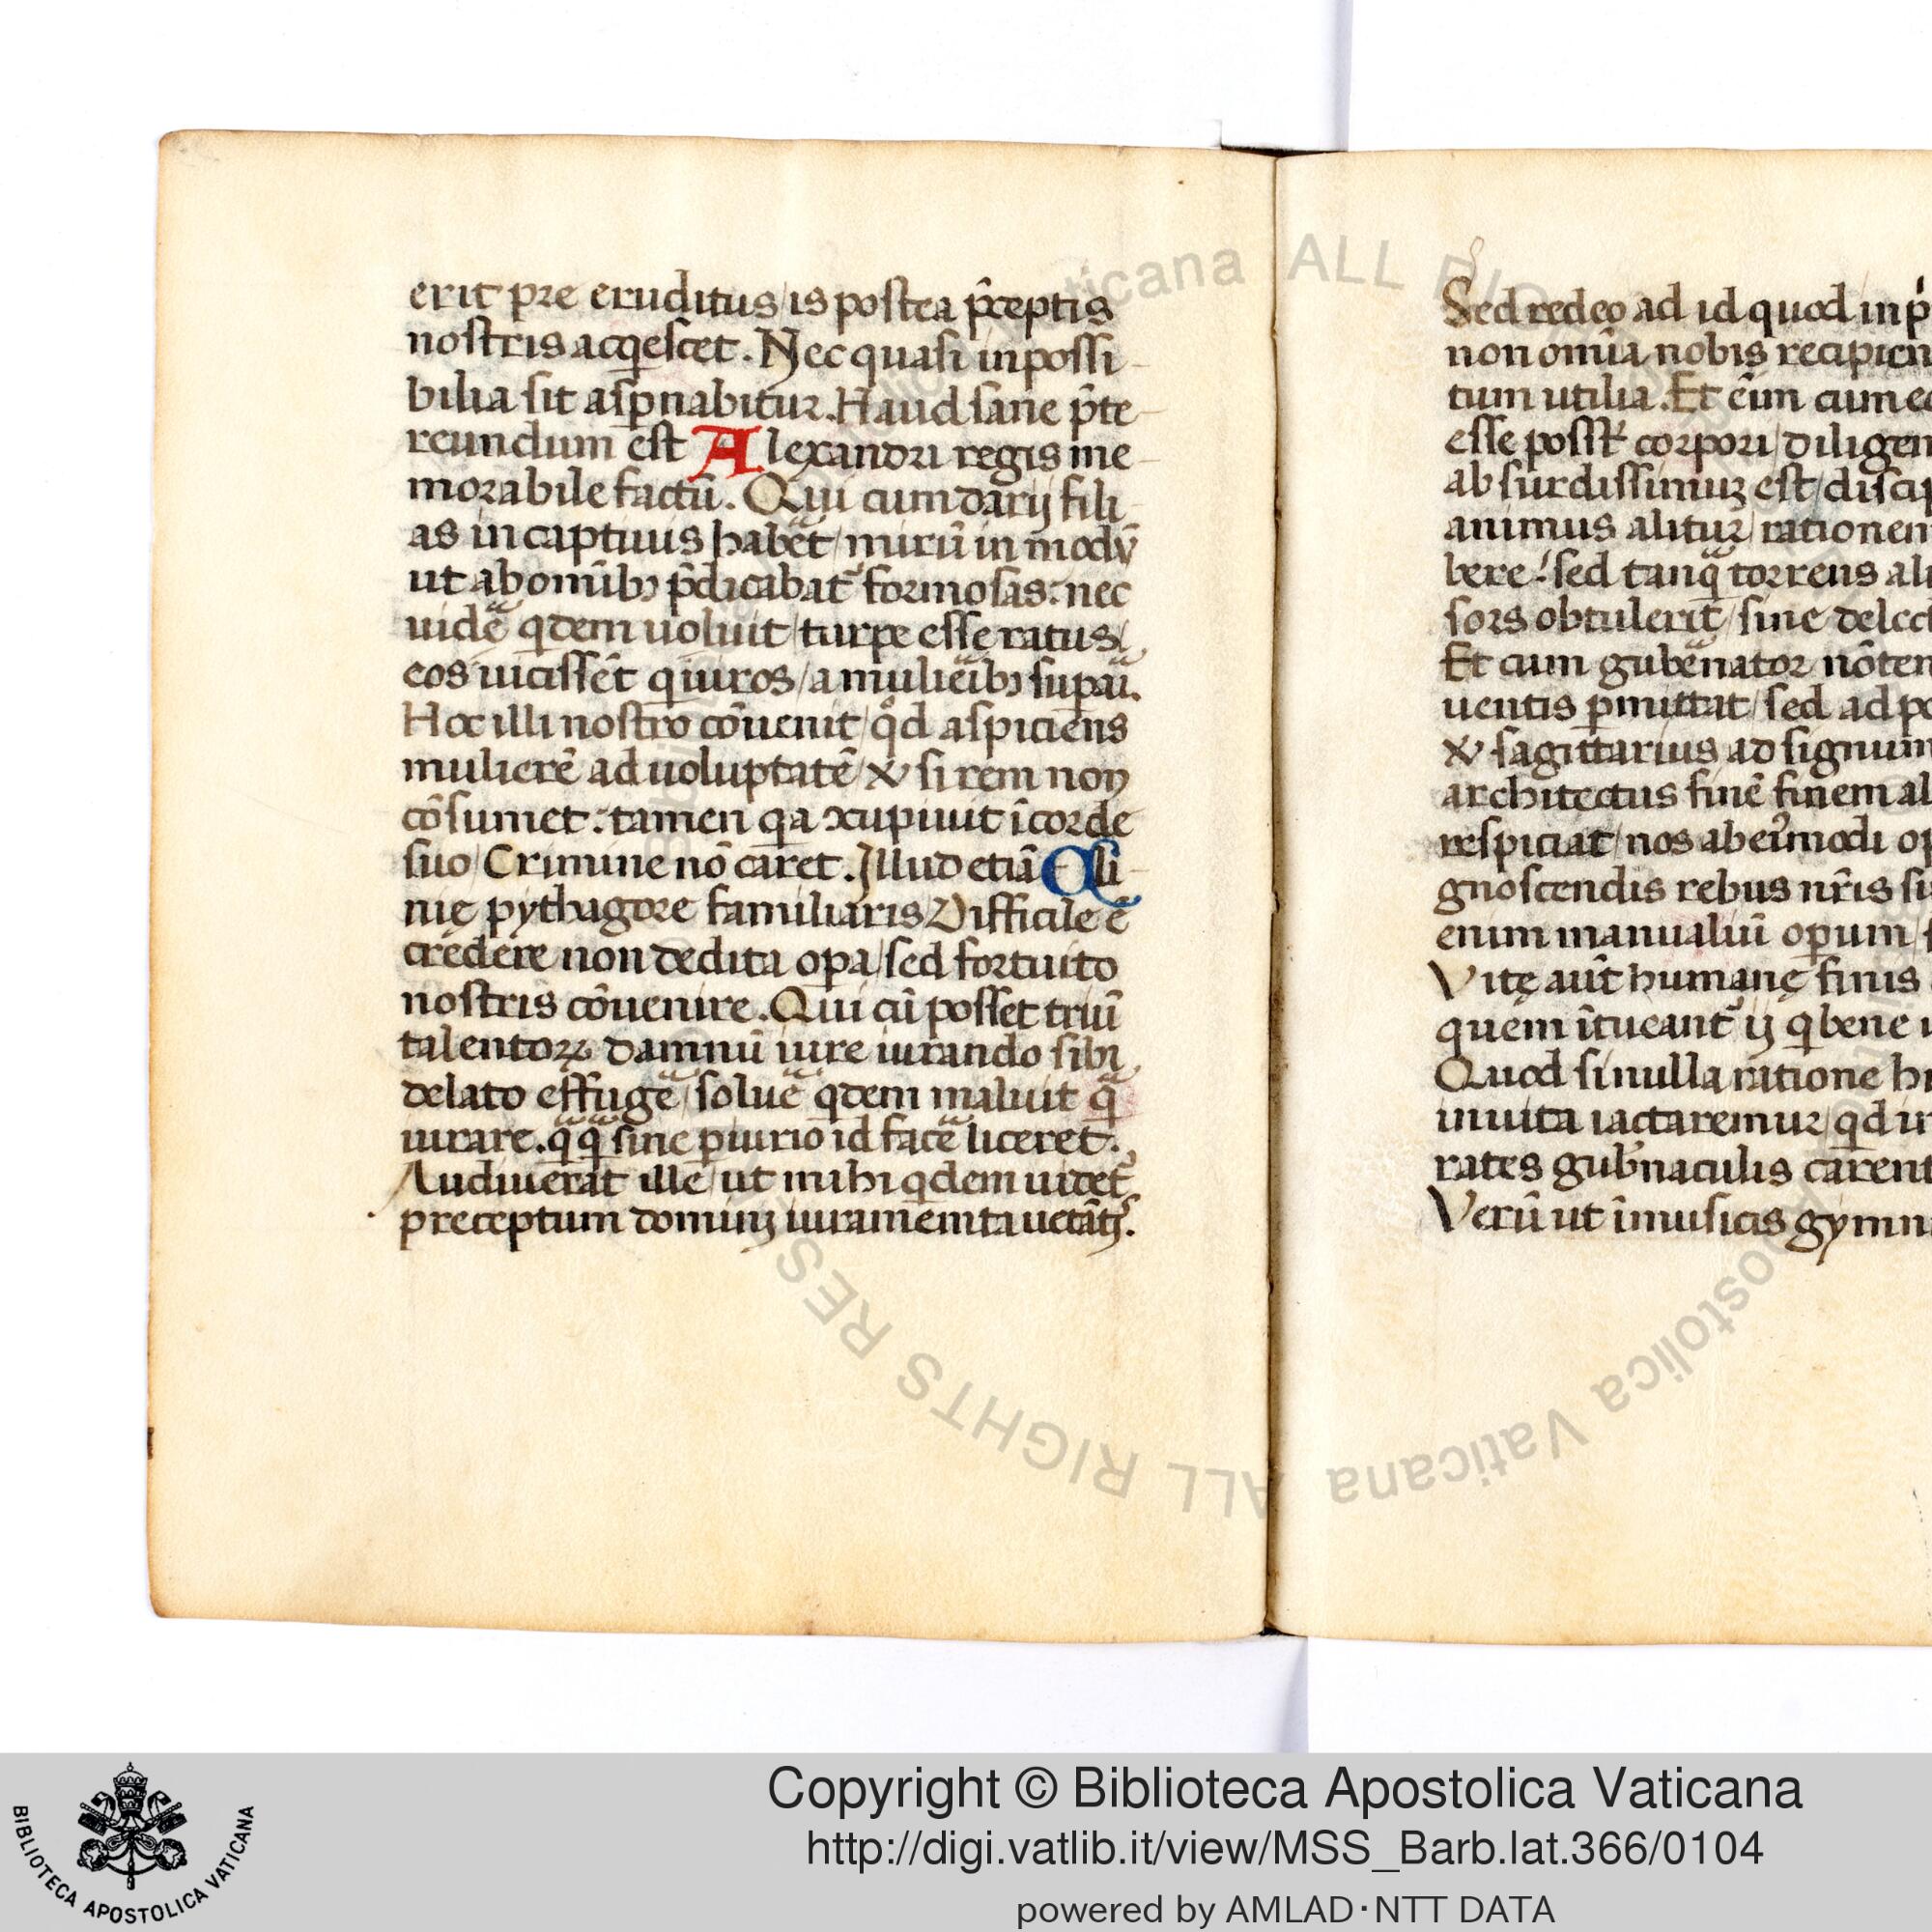 erit pre eruditus/is postea p̄ceptis
nostris acq̇escet. Nec quasi inpossi-
bilia sit asp̱nabitur. Haud sane p̄te-
reundum est Alexandri regis me-
morabile factū. Qui cum darij fili-
as in captiuus habēt/mirū in modū
ut ab om̄ibꝫ p̄dicabatᷣ formosas: nec
uidē qdem uoluit/turpe esse ratus/
eos uicissēt qiuros/a muliēibꝫ supaī.
Hoc illi nostro cōuenit/qd̊ aspiciens
mulierē ad uoluptatē/& si rem non
cōsumet: tamen qa ɔcupiuit ī corde
suo/Crimine nō caret. Illud etiā Cli-
nię pythagore familiaris Difficile ē
credere non dedita oꝑa/sed fortuito
nostris cōuenire. Qui cū posset triū
talentoꝝ damnū iure iurando sibi
delato effugē/soluē qdem maluit qᷓ
iurare. qᷓqᷓ sine ꝑiurio id facē liceret.
Audiuerat ille/ut mihi qdem uidetᷣ
preceptum dominꝫ iuramemta uetātꝭ.
Sed redeo ad id quod in p
non om̄ia nobis recipien
tum utilia. Et eīm cum e
esse possītᷣ corpori/diligen
absurdissimuꝫ est/disci
animus alitur/rationem
bere: sed tanqᷓ torrens ali
sors obtulerit/sine delect
Et cum gubēnator nōten
uentis ꝑmittat/sed ad po
& sagittarius ad signum
architectus finē finem al
respiciat/nos ab eiꝰmodi op
gnoscendis rebus nr̄is si
enim manualiū oꝑum/
Vitę aūt humanę finis
quem ītueantᷣ ij q bene u
Quod si nulla ratione h
inuita iactaremur/qd i
rates gubᷣnaculis carent
Verū ut ī musicis gymn
Copyright © Biblioteca Apostolica Vaticana
http://digi.vatlib.it/view/MSS_Barb.lat.366/0104
powered by AMLAD·NTT DATA
BIBLIOTECA APOSTOLICA VATICANA